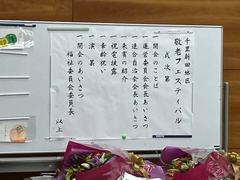 千里新田地区
敬老フェスティバル
式次第
一 開会のことば
一 運営委員会会長あいさつ
一 連合自治会会長あいさつ
一 来賓の紹介
一 祝電披露
一 喜齢祝い
一 演芸
一 閉会のあいさつ
福祉委員会委員長
以上